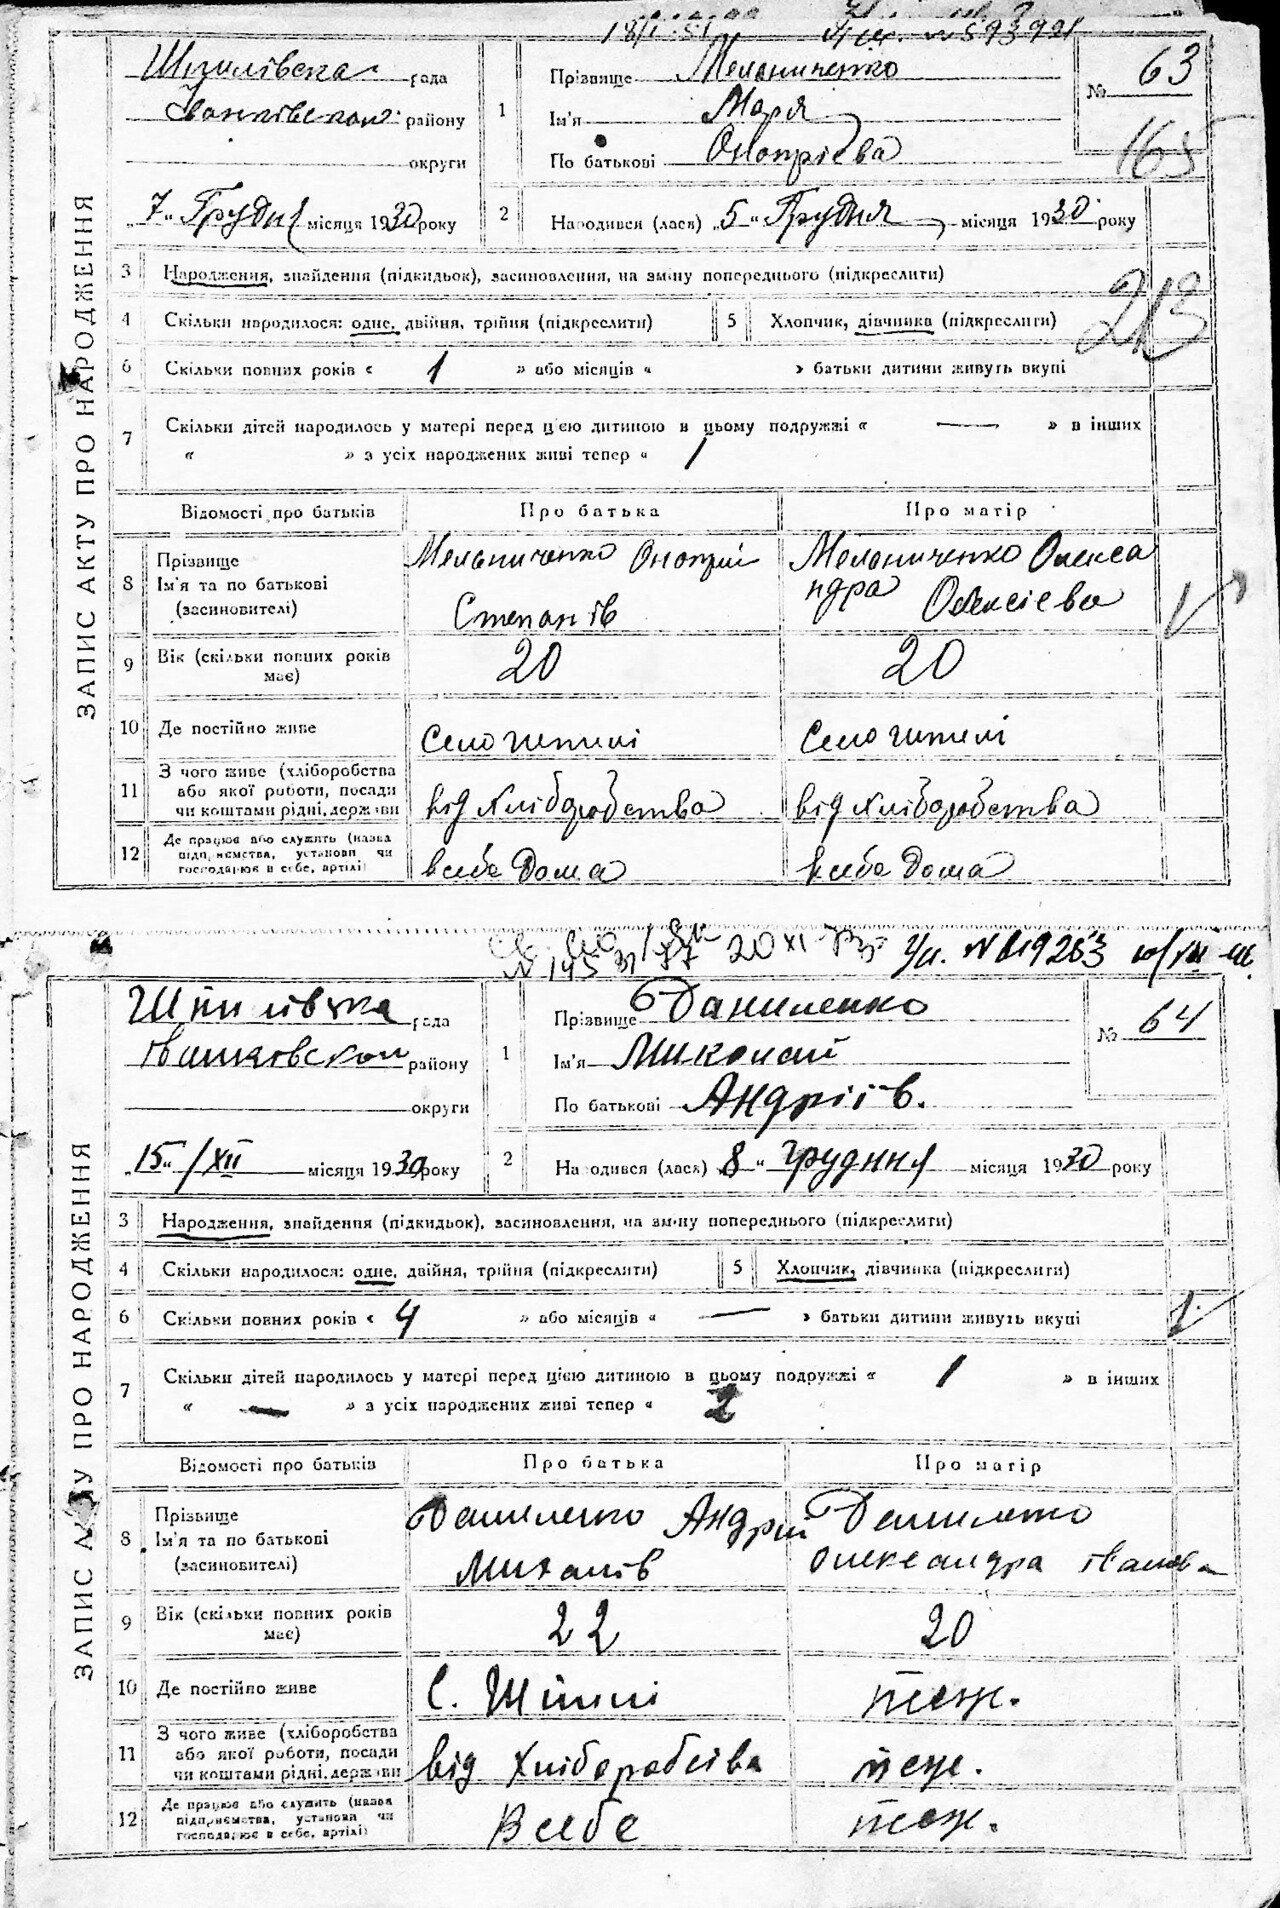 18/I-51
ЗАПИС АКТУ ПРО НАРОДЖЕННЯ
Шпилівська рада
Іванківської району
округи
7 „ Грудня місяця 1930 року
1 Прізвище Мельниченко
Ім'я Марія
По батькові Онопрієва
№ 63
165
2 Народився (лася) „ 5 " Грудня місяця 1930 року
3 Народження, знайдення (підкидьок), засиновлення, на зміну попереднього (підкреслити)
213
4 Скільки народилося: одне, двійня, трійня (підкреслити) 5 Хлопчик, дівчинка (підкреслити)
6 Скільки повних років « 1 » або місяців « » батьки дитини живуть вкупі
7 Скільки дітей народилось у матері перед цією дитиною в цьому подружжі « — » в інших
« » з усіх народжених живі тепер « 1
Відомості про батьків Про батька Про матір
8 Прізвище Ім'я та по батькові (засиновителі)
Мельниченко Онопрій
Степанів
Мельниченко Олекса
ндра Олексієва
9 Вік (скільки повних років має) 20 20
10 Де постійно живе Село Шпилі Село Шпилі
11 З чого живе (хліборобства або якої роботи, посади чи коштами рідні, держави від хліборобства від хліборобства
12 Де працює або служить (назва підприємства, установи чи господарює в себе, артілі) в себе дома в себе дома
20 XI
№ 145
ЗАПИС АКТУ ПРО НАРОДЖЕННЯ
Шпилівська рада
Іванковском району
округи
„ 15 " /XII місяця 1930 року
1 Прізвище Даниленко
Ім'я Миколай
По батькові Андріїв.
№ 64
2 Народився (лася) „ 8 " грудння місяця 1930 року
3 Народження, знайдення (підкидьок), засиновлення, на зміну попереднього (підкреслити)
4 Скільки народилося: одне, двійня, трійня (підкреслити) 5 Хлопчик, дівчинка (підкреслити)
6 Скільки повних років « 4 » або місяців « — » батьки дитини живуть вкупі
7 Скільки дітей народилось у матері перед цією дитиною в цьому подружжі « 1 » в інших
« — » з усіх народжених живі тепер « 2
Відомості про батьків Про батька Про матір
8 Прізвище Ім'я та по батькові (засиновителі)
Даниленко Андрій
Михалів
Даниленко
Олександра Іванова
9 Вік (скільки повних років має) 22 20
10 Де постійно живе С. Шпилі теж.
11 З чого живе (хліборобства або якої роботи, посади чи коштами рідні, держави від хліборобсва теж.
12 Де працює або служить (назва підприємства, установи чи господарює в себе, артілі) В себе теж.